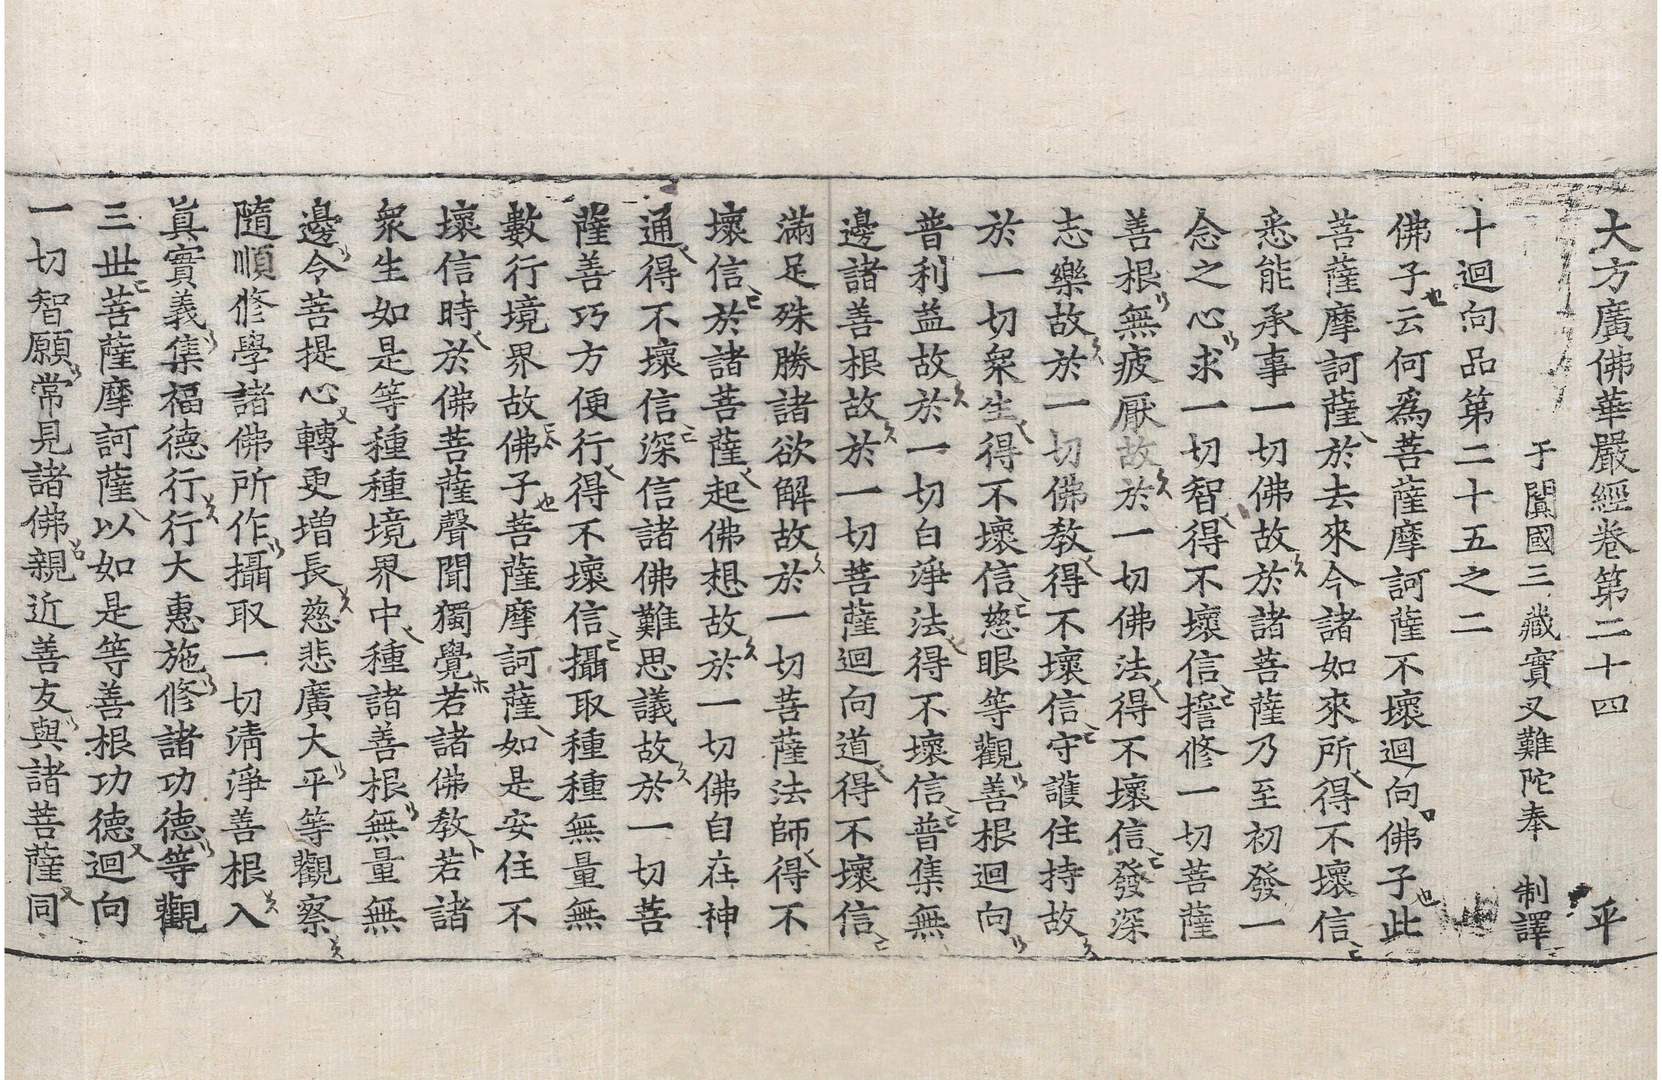 大方廣佛華嚴經卷第二十四 平
于闐國三藏實叉難陀奉 制譯
十迴向品第二十五之二
佛子云何為菩薩摩訶薩不壞迴向佛子此
菩薩摩訶薩於去來今諸如來所得不壞信
悉能承事一切佛故於諸菩薩乃至初發一
念之心求一切智得不壞信擔修一切菩薩
善根無疲厭故於一切佛法得不壞信發深
志樂故於一切佛教得不壞信守護住持故
於一切衆生得不壞信慈眼等觀善根迴向
普利益故於一切白淨法得不壞信普集無
邊諸善根故於一切菩薩迴向道得不壞信
滿足殊勝諸欲解故於一切菩薩法師得不
壞信於諸菩薩起佛想故於一切佛自在神
通得不壞信深信諸佛難思議故於一切菩
薩善巧方便行得不壞信攝取種種無量無
數行境界故佛子菩薩摩訶薩如是安住不
壞信時於佛菩薩聲聞獨覺若諸佛教若諸
衆生如是等種種境界中種諸善根無量無
邊令菩提心轉更增長慈悲廣大平等觀察
隨順修學諸佛所作攝取一切清淨善根入
眞實義集福德行行大惠施修諸功德等觀
三世菩薩摩訶薩以如是等善根功德迴向
一切智願常見諸佛親近善友與諸菩薩同